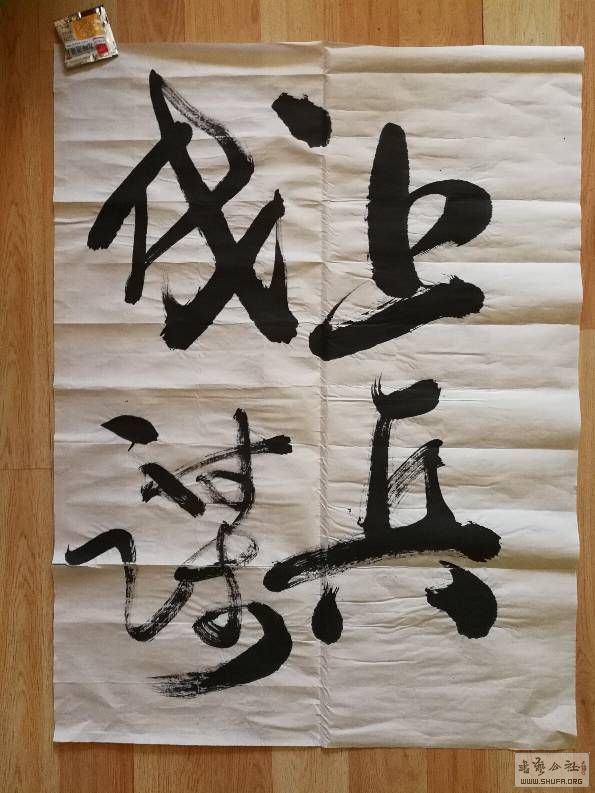 上兵
伐谋
书艺公社
WWW.SHUFA.ORG